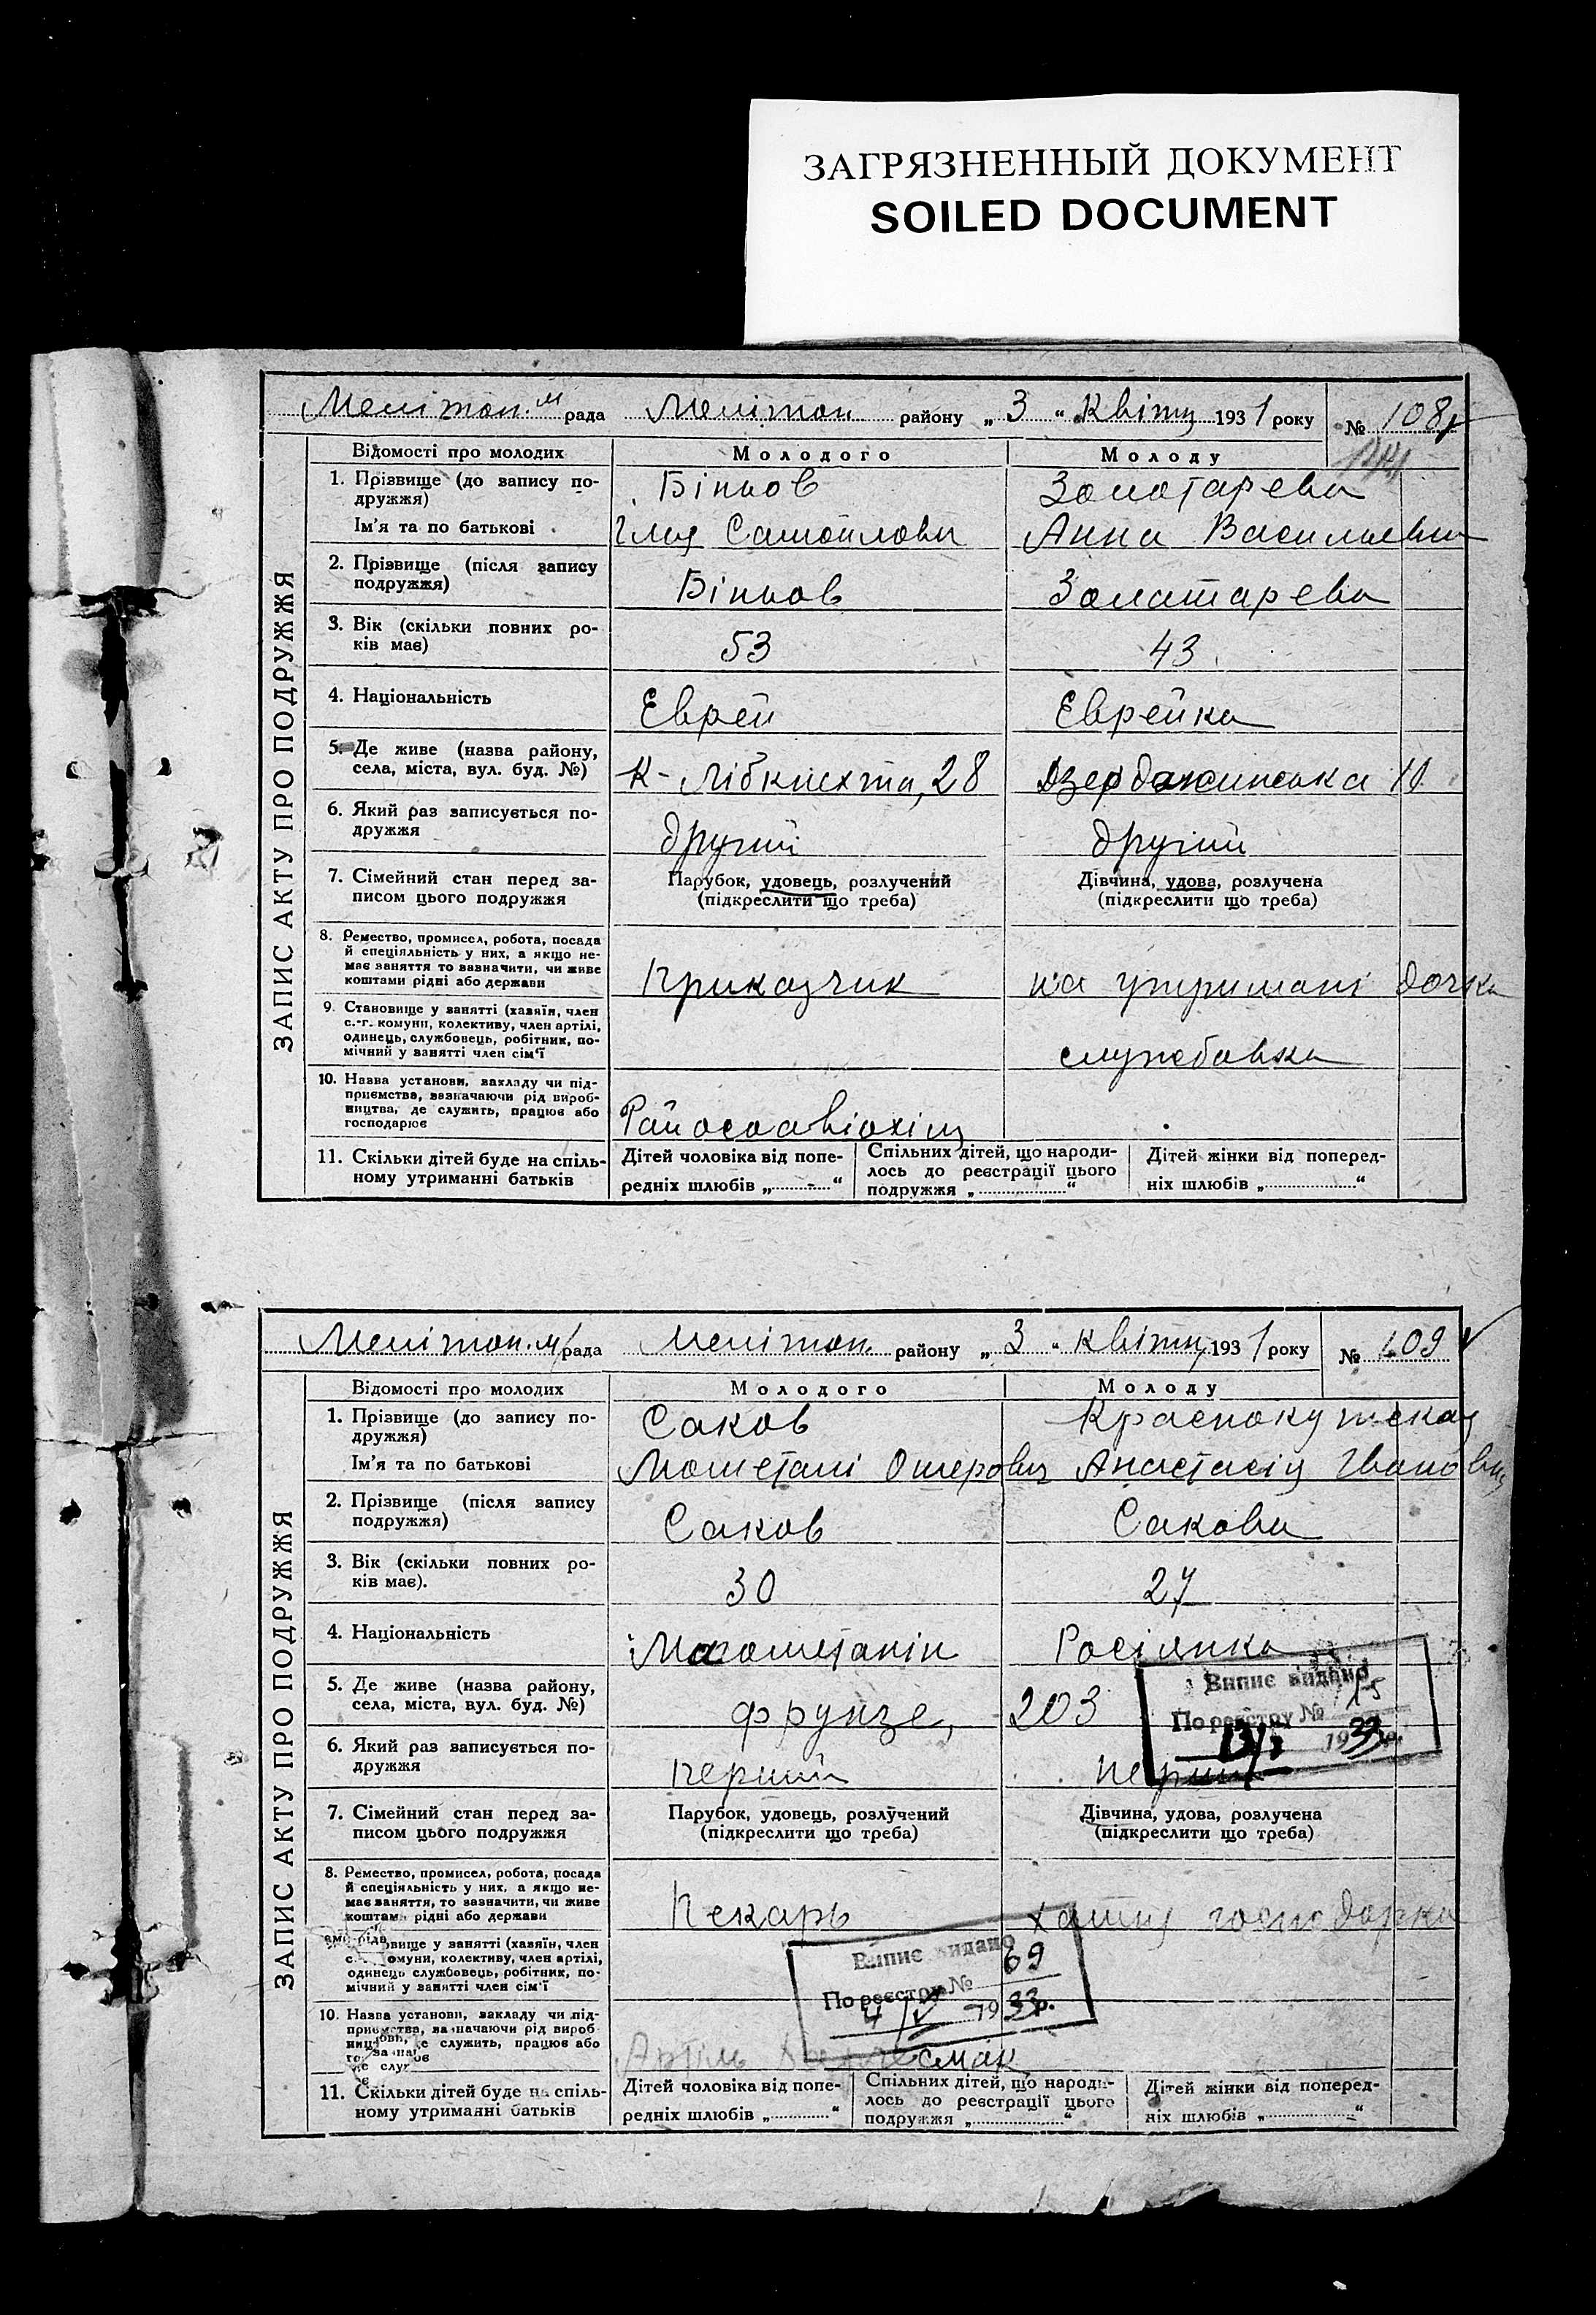 ЗАГРЯЗНЕННЫЙ ДОКУМЕНТ
SOILED DOCUMENT
ЗАПИС АКТУ ПРО ПОДРУЖЖЯ
Мелітоп. м рада Мелітоп. району „ 3 “ Квітня 1931 року № 108
Відомості про молодих Молодого Молоду
1. Прізвище (до запису по- Біньов Золотарева
дружжя)
Ім'я та по батькові Ілля Самойлович Анна Васильевна
2. Прізвище (після запису
подружжя) Біньов Золотарева
3. Вік (скільки повних ро-
ків має) 53 43
4. Національність Еврей Еврейка
5. Де живе (назва району,
села, міста, вул. буд. №) К-Лібкнехта, 28 Дзержинська 11
6. Який раз записується по-
дружжя другий другий
7. Сімейний стан перед за- Парубок, удовець, розлучений Дівчина, удова, розлучена
писом цього подружжя (підкреслити що треба) (підкреслити що треба)
8. Ремество, промисел, робота, посада
й спеціяльність у них, а якщо не-
має заняття то зазначити, чи живе
коштами рідні або держави Приказчик на утримані дочка
9. Становище у занятті (хазяїн, член
с.-г. комуни, колективу, член артілі,
одинець, службовець, робітник, по-
мічний у занятті член сім'ї службовка
10. Назва установи, закладу чи під-
приємства, зазначаючи рід вироб-
ництва, де служить, працює або
господарює Райосоавіохім
11. Скільки дітей буде на спіль- Дітей чоловіка від попе- Спільних дітей, що народи- Дітей жінки від поперед-
ному утриманні батьків редніх шлюбів „ - “ лось до реєстрації цього подружжя „ “ ніх шлюбів „ “
ЗАПИС АКТУ ПРО ПОДРУЖЖЯ
Мелітоп. м/рада Мелітоп. району „ 3 “ квітня 1931 року № 109
Відомості про молодих Молодого Молоду
1. Прізвище (до запису по- Саков Краснокутская
дружжя)
Ім'я та по батькові Ошерович Анастасія Івановна
2. Прізвище (після запису
подружжя) Саков Сакова
3. Вік (скільки повних ро-
ків має). 30 27
4. Національність Магометанін Росіянка
5. Де живе (назва району,
села, міста, вул. буд. №) Фрунзе, 203
Випис видано
По реєстру № 115
1933 р.
6. Який раз записується по-
дружжя перший перший
7. Сімейний стан перед за- Парубок, удовець, розлучений Дівчина, удова, розлучена
писом цього подружжя (підкреслити що треба) (підкреслити що треба)
8. Ремество, промисел, робота, посада
й спеціяльність у них, а якщо не-
має заняття, то зазначити, чи живе
коштами рідні або держави Пекарь хатня господарка
вище у занятті (хазяїн, член
с. омуни, колективу, член артілі,
одинець службовець, робітник, по-
мічний у занятті член сім'ї
Випис видано
По реєстру № 69
4/V 1933 р.
10. Назва установи, закладу чи під-
приємства, зазначаючи рід вироб-
ництва, де служить, працює або
Артіль смак
11. Скільки дітей буде на спіль- Дітей чоловіка від попе- Спільних дітей, що народи- Дітей жінки від поперед-
ному утриманні батьків редніх шлюбів „ “ лось до реєстрації цього подружжя „ “ ніх шлюбів „ “